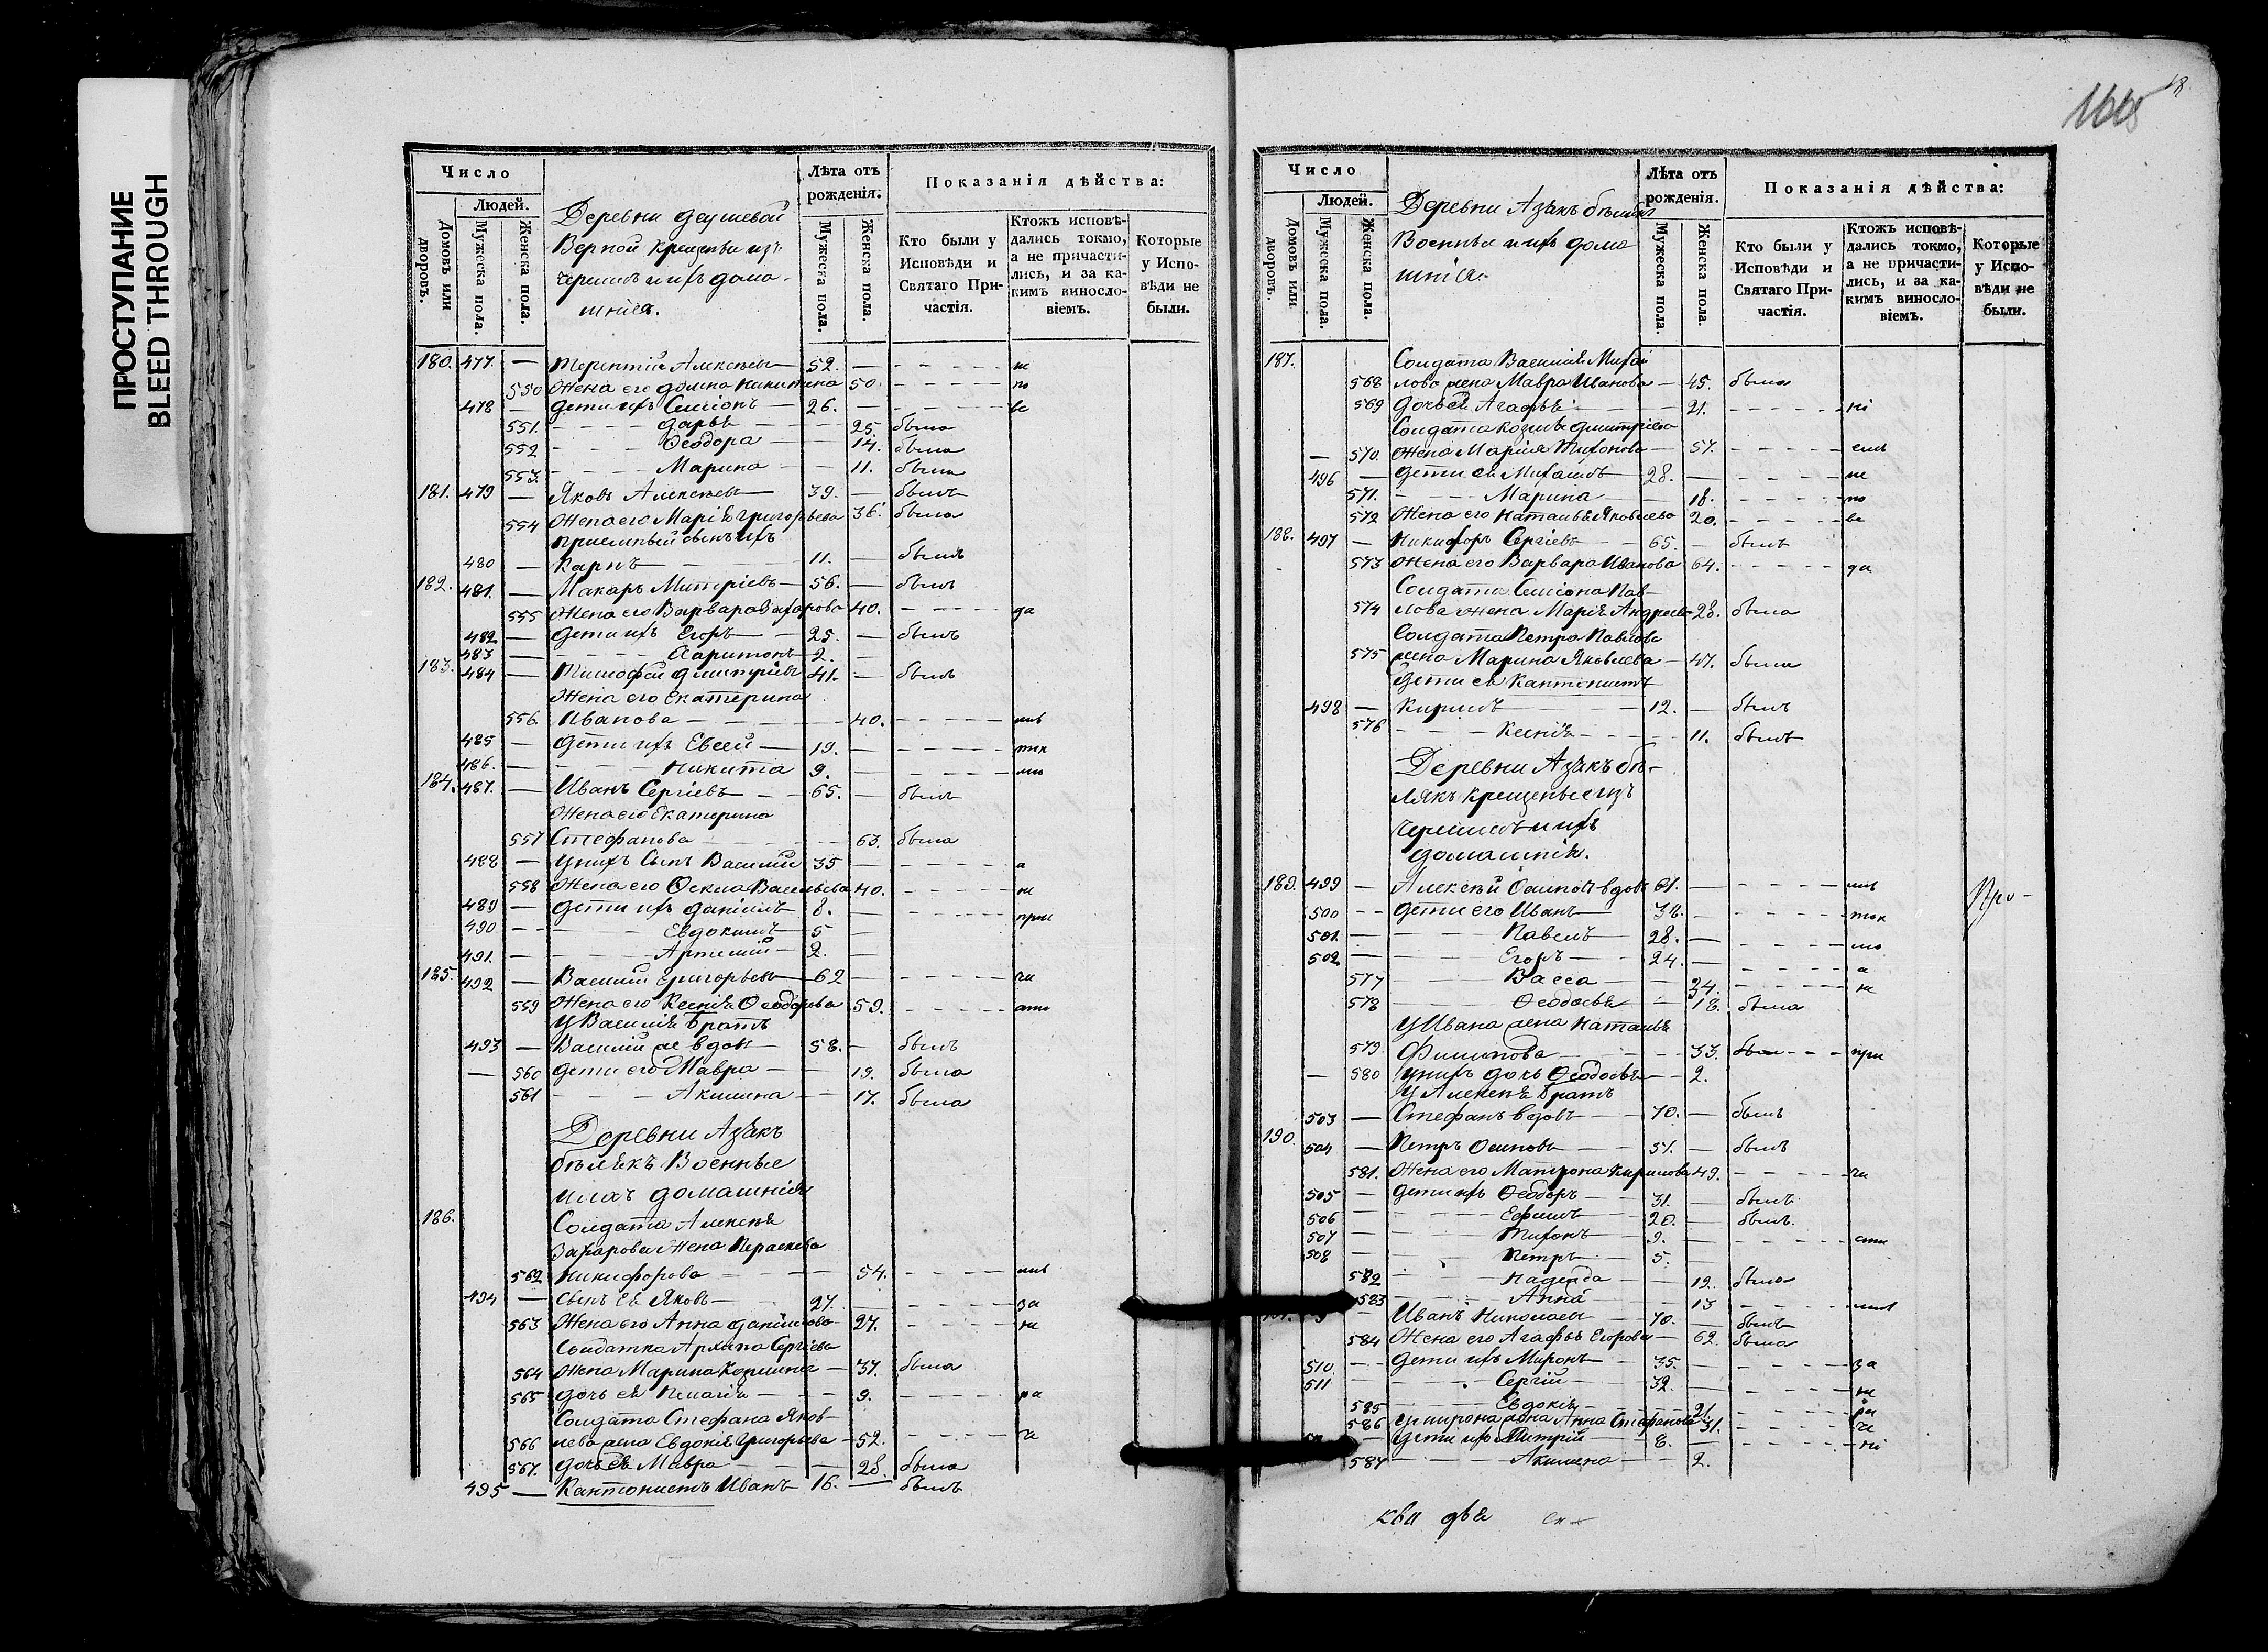 ПРОСТУПАНИЕ
BLEED THROUGH
Число
Людей.
Домовъ или дворовъ.
Мужеска пола.
Женска пола.
Деревни
Верной крещеные изъ
черемисъ и ихъ дома-
шнія.
Лѣта отъ рожденія.
Мужеска пола.
Женска пола.
Показанія дѣйства:
Кто были у Исповѣди и Святаго Причастія.
Ктожъ исповѣдались токмо, а не причастились, и за какимъ винословіемъ.
Которые у Исповѣди не были.
180. 477. — Терентій Алексѣевъ — 52. — не
550 Жена его Домна Никитина 50. по
478 — Дети ихъ Симіонъ — 26. — ве
551. Дарья 25. была
552 Ѳеодора 14. была
553. Марина 11. была
181. 479 — Яковъ Алексѣевъ — 39. — былъ
554 Жена его Марія Григорьева 36. была
Приемный сынъ ихъ
480 — Карпъ 11. — былъ
182. 481. — Макаръ Митріевъ — 56. — былъ
555 Жена его Варвара Захарова 40. да
482 — Дети ихъ Егоръ — 25. — былъ
483 — Харитонъ — 2. —
183. 484 — Тимофей Дмитріевъ 41. — былъ
Жена его Екатерина
556. Иванова 40.
485 — Дети ихъ Евсей — 19. —
486. — Никита 9. —
184. 487. — Иванъ Сергіевъ 65. — былъ
Жена его Екатерина
557 Стефанова 63. была
488 — У нихъ сынъ Василій 35 — а
558 Жена его Ѳекла Васильева 40. не
489 — Дети ихъ Даніилъ 8. — при
490 Евдокимъ 5 —
491. — Артемій 2. —
185. 492 — Василій Григорьевъ — 62 — ча
559 Жена его Ксенія Ѳеодорова 59.
У Василія братъ
493 — Василій же вдовъ 58. — былъ
— 560 Дети его Мавра 19. была
561 Акилина 17. была
Деревни Азъякъ
бѣлякъ Военные
и ихъ домашнія
186. Солдата Алексѣя
Захарова жена Параскева
562 Никифорова 54.
494 — Сынъ ея Яковъ 27. за
563 Жена его Анна Данилова 27. не
Солдатка Архипа Сергіева
564 Жена Марина Козмина — 37. была
565 Дочь ея Пелагія 9. ра
Солдата Стефана Яков-
566 лева жена Евдокія Григорьева — 52. че
567. Дочь ея Мавра 28. была
495 — Кантонистъ Иванъ 16. — былъ
18.
Число
Людей.
Домовъ или дворовъ.
Мужеска пола.
Женска пола.
Деревни Азъякъ бѣлякъ
Военныя и ихъ дома
шнія.
Лѣта отъ рожденія.
Мужеска пола.
Женска пола.
Показанія дѣйства:
Кто были у Исповѣди и Святаго Причастія.
Ктожъ исповѣдались токмо, а не причастились, и за какимъ винословіемъ.
Которые у Исповѣди не были.
187. Солдата Василія Михай
568 лова жена Мавра Иванова — 45. была
569 Дочь ея Агафья 21. ні
Солдата Козмы Дмитріева
— 570. Жена Марія Тихонова — 57. емъ
496 — Дети ея Михаилъ 28. — не
571. Марина 18. по
572 Жена его Наталья Яковлева 20. ве
188. 497 — Никифоръ Сергіевъ 65. — былъ
573 Жена его Варвара Иванова 64. да
Солдата Симіона Пав-
574 лова жена Марія Андреева 28. была
Солдата Петра Павлова
575 жена Марина Яковлева — 47. была
Дети ея Кантонистъ
498 — Кирилъ 12. — былъ
576 Ксенія 11. былъ
Деревни Азъякъ бѣ-
лякъ крещеные изъ
черемисъ и ихъ
домашнія.
189. 499 — Алексѣй Осиповъ вдовъ 61. —
500 Дети его Иванъ 38. —
501. Павелъ 28. —
502 Егоръ 24. — а
577 Васса 34. не
578 Ѳеодосья 18. была
У Ивана жена Наталья
579 Филипова 33. при
— 580 У нихъ дочь Ѳеодосья 2.
У Алексѣя братъ
503 — Стефанъ вдовъ 70. — былъ
190. 504 — Петръ Осиповъ 51. — былъ
581. Жена его Матрона Кирилова 49. ча
505 — Дети ихъ Ѳеодоръ 31. — былъ
506 — Ефимъ 20. — былъ
507 — Тихонъ 9. —
508 — Петръ 5. —
582 Надежда 12. была
583 Анна 13
Иванъ Николаевъ 70. — былъ
584 Жена его Агафья Егорова 62. была
510. Дети ихъ Миронъ 35. — за
511 Сергій 32. — не
585 Евдокія 21. ра
586 У Мирона жена Анна Стефанова 31. че
Дети ихъ Митрій 8. — ні
587 Акилина 2.
Про-